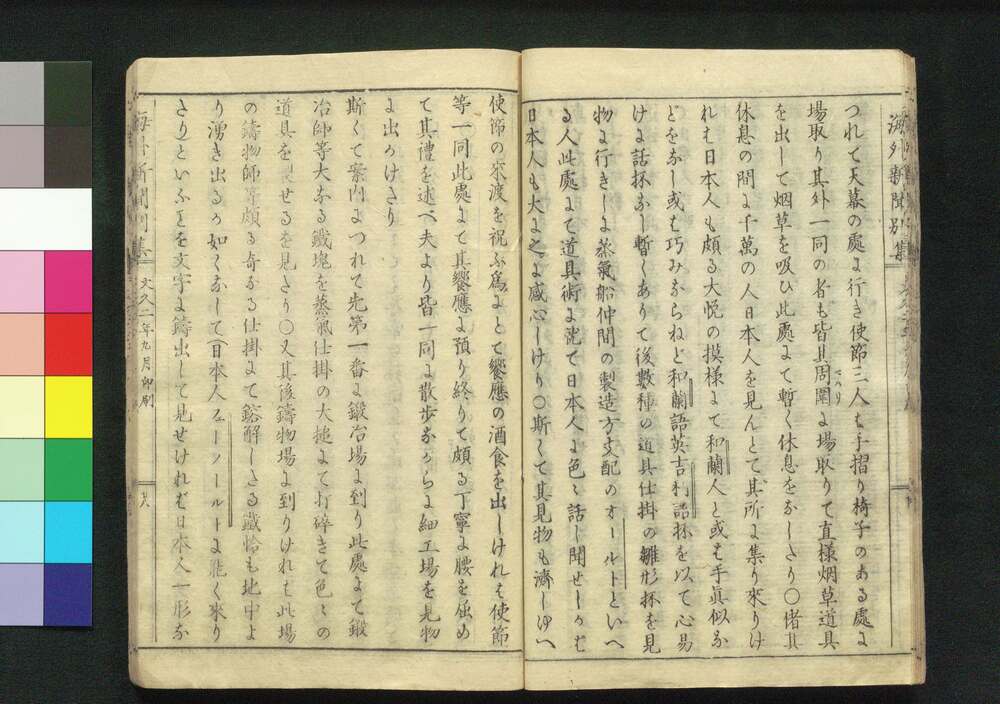 海外新聞別集
つれて天幕の處に行き使節三人も手摺り椅子のある處に
場取り其外一同の者も皆其周圍に場取りて直様烟草道具
を出して烟草を吸ひ此處にて暫く休息をなしたり〇偖其
休息の間に千萬の人日本人を見んとて其所に集り來りけ
れは日本人も頗る大悦の摸様にて和蘭人と或は手眞似な
どをなし或は巧みならねど和蘭語英吉利語抔を以て心易
けに話抔なし暫くありて後數種の道具仕掛の雛形抔を見
物に行きしに蒸氣船仲間の製造方支配のオールトといへ
る人此處にて道具術に就て日本人に色〻話し聞せしかは
日本人も大に之に感心しけり〇斯くて其見物も濟しゆへ
使節の來渡を祝ふ爲にとて饗應の酒食を出しけれは使節
等一同此處にて其饗應に預り終りて頗る丁寧に腰を屈め
て其禮を述べ夫より皆一同に散歩なからに細工場を見物
に出かけたり
斯くて案内につれて先第一番に鍛冶場に到り此處にて鍛
冶師等大なる鐵塊を蒸氣仕掛の大槌にて打碎きて色〻の
道具を製せるを見たり〇又其後鑄物場に到りけれは此場
の鑄物師等頗る奇なる仕掛にて鎔解したる鐵恰も地中よ
り湧き出るか如くなして日本人フェーノールトに能く來り
たりといふことを文字に鑄出して見せけれは日本人一形な
海外新聞別集 文久二年九月印刷 十八